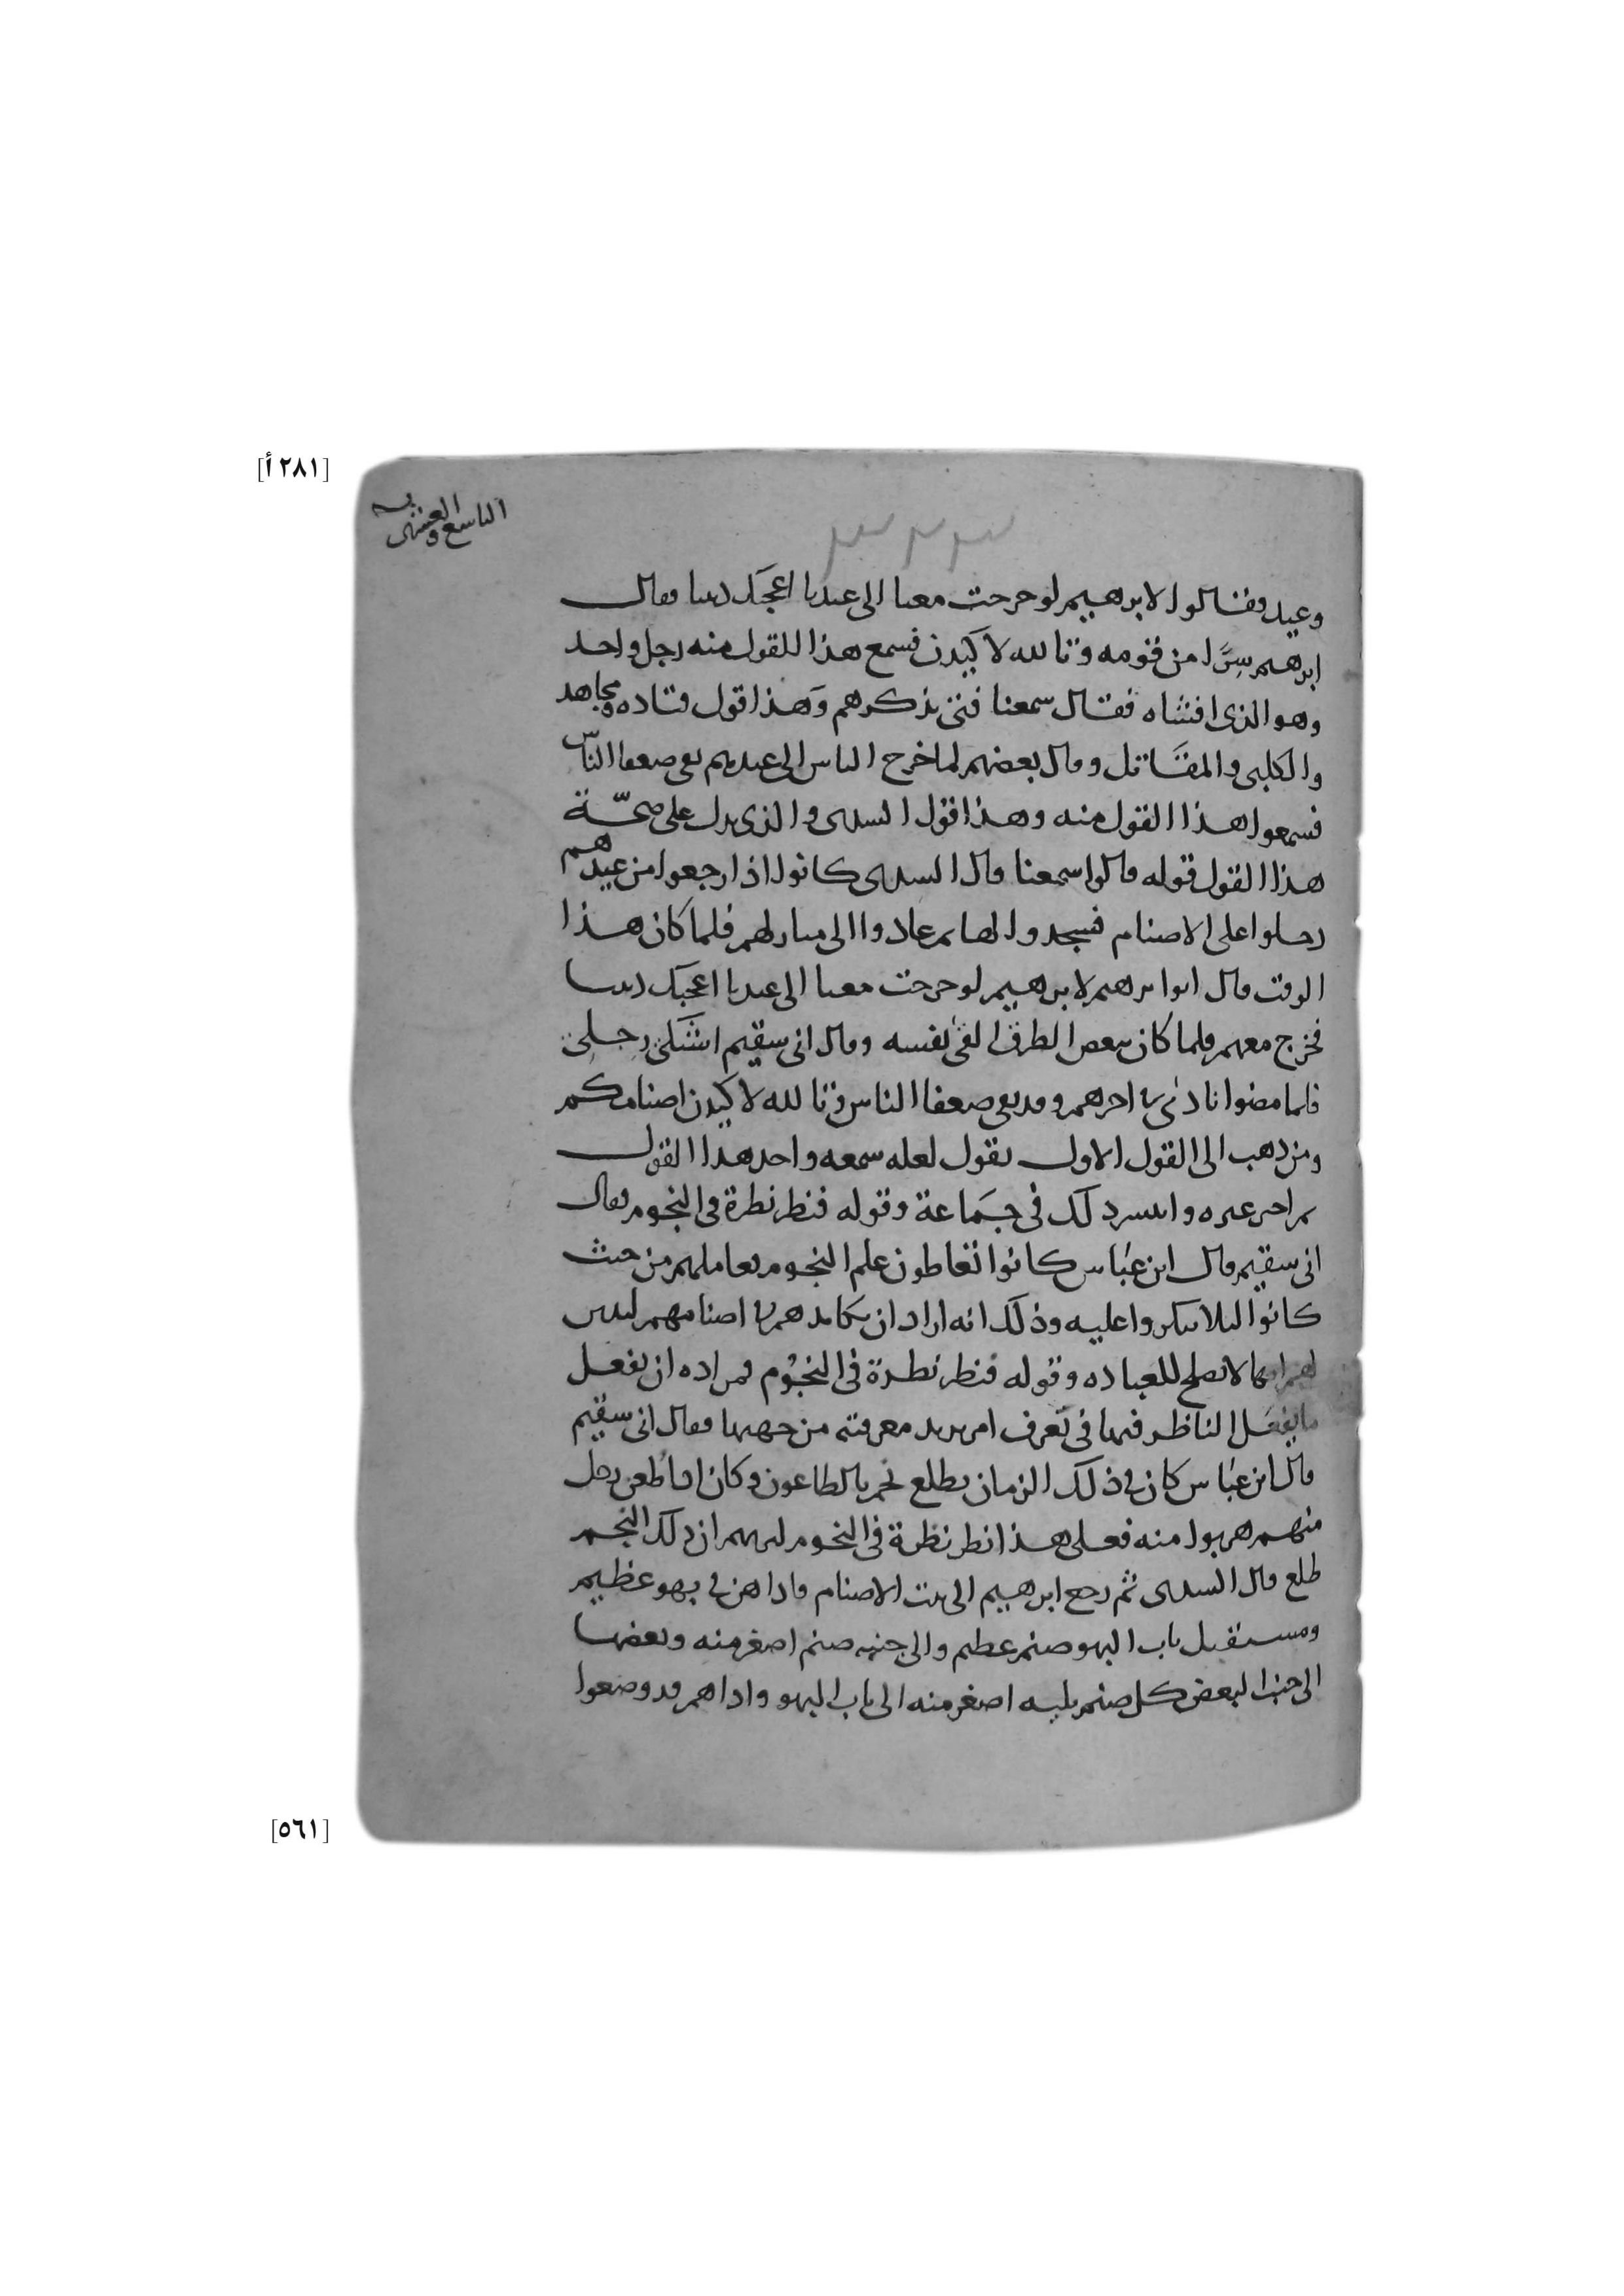 [٢٨١ أ]
التاسع والعشرين
وعيد وقالوا لابرهيم لو خرجت معنا الى عيدنا اعجبك ديننا فقال
ابرهيم سِرًّا من قومه وتالله لاكيدن فسمع هذا القول منه رجل واحد
وهو الذى افشاه فقال سمعنا فتى يذكرهم وهذا قول قتاده ومجاهد
والكلبى والمقاتل وقال بعضهم لما خرج الناس الى عيدهم بقى ضعفا الناس
فسمعوا هذا القول منه وهذا قول السدى والذى يدل على صحّة
هذا القول قوله قالوا سمعنا قال السدى كانوا اذا رجعوا من عيدهم
دخلوا على الاصنام فسجدوا لها ثم عادوا الى منازلهم فلما كان هذا
الوقت قال ابو ابرهيم لابرهيم لو خرجت معنا الى عيدنا اعجبك ديننا
فخرج معهم فلما كان ببعض الطرق القى نفسه وقال انى سقيم اشتكى رجلى
فلما مضوا نادى فى اخرهم وقد بقى ضعفا الناس وتالله لاكيدن اصنامكم
ومن ذهب الى القول الاول يقول لعله سمعه واحد هذا القول
ثم اخبر غيره وانتشر ذلك فى جماعة وقوله فنظر نظرة فى النجوم فقال
انى سقيم قال ابن عباس كانوا تعاطون علم النجوم فعاملهم من حيث
كانوا لئلا ينكروا عليه وذلك انه اراد ان يكايدهم فى اصنامهم ليتبين
لهم انها لا تصلح للعباده وقوله فنظر نظرة فى النجوم فمراده ان يفعل
ما يفعل الناظر فيها فى تعرف امر يريد معرفته من جهتها فقال انى سقيم
قال ابن عباس كان فى ذلك الزمان يطلع نجم بالطاعون وكان اذا طعن رجل
منهم هربوا منه فعلى هذا نظر نظرة فى النجوم ليريهم ان ذلك النجم
طلع قال السدى ثم رجع ابرهيم الى بيت الاصنام فاذا هن فى بهو عظيم
ومستقبل باب البهو صنم عظيم والى جنبه صنم اصغر منه وبعضها
الى جنب البعض كل صنم يليه اصغر منه الى باب البهو واذا هم قد وضعوا
[٥٦١]